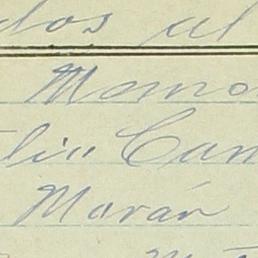 dos al
Momo
lio Cam
Morán